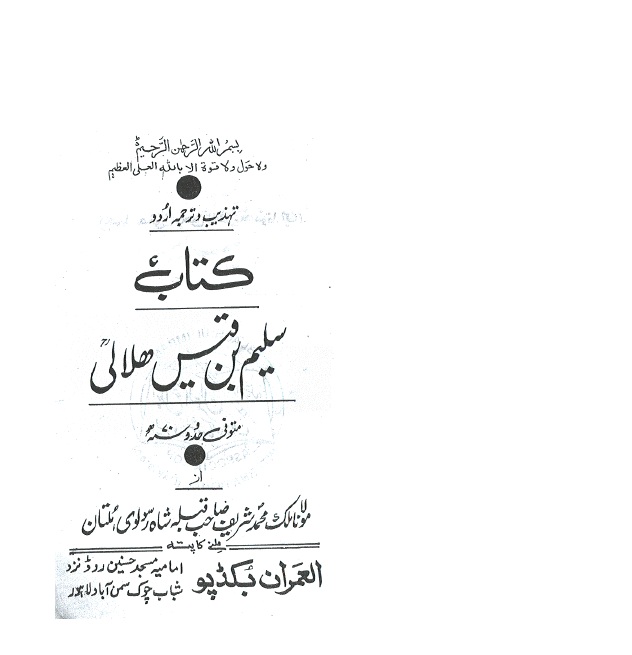 بسم اللہ الرحمٰن الرحیم
ولا حول ولا قوۃ الا باللہ العلی العظیم
تہذیب و ترجمہ اُردو
کتابِ
سلیم بن قیس ھلالیؒ
متوفی حدود ۷۰ھ
از
مولانا ملک محمد شریف صاحب قبلہ شاہ رسولوی، مُلتان
ملنے کا پتہ
العمران بُکڈپو
امامیہ مسجد حسنین روڈ نزد
شباب چوک سمن آباد لاہور